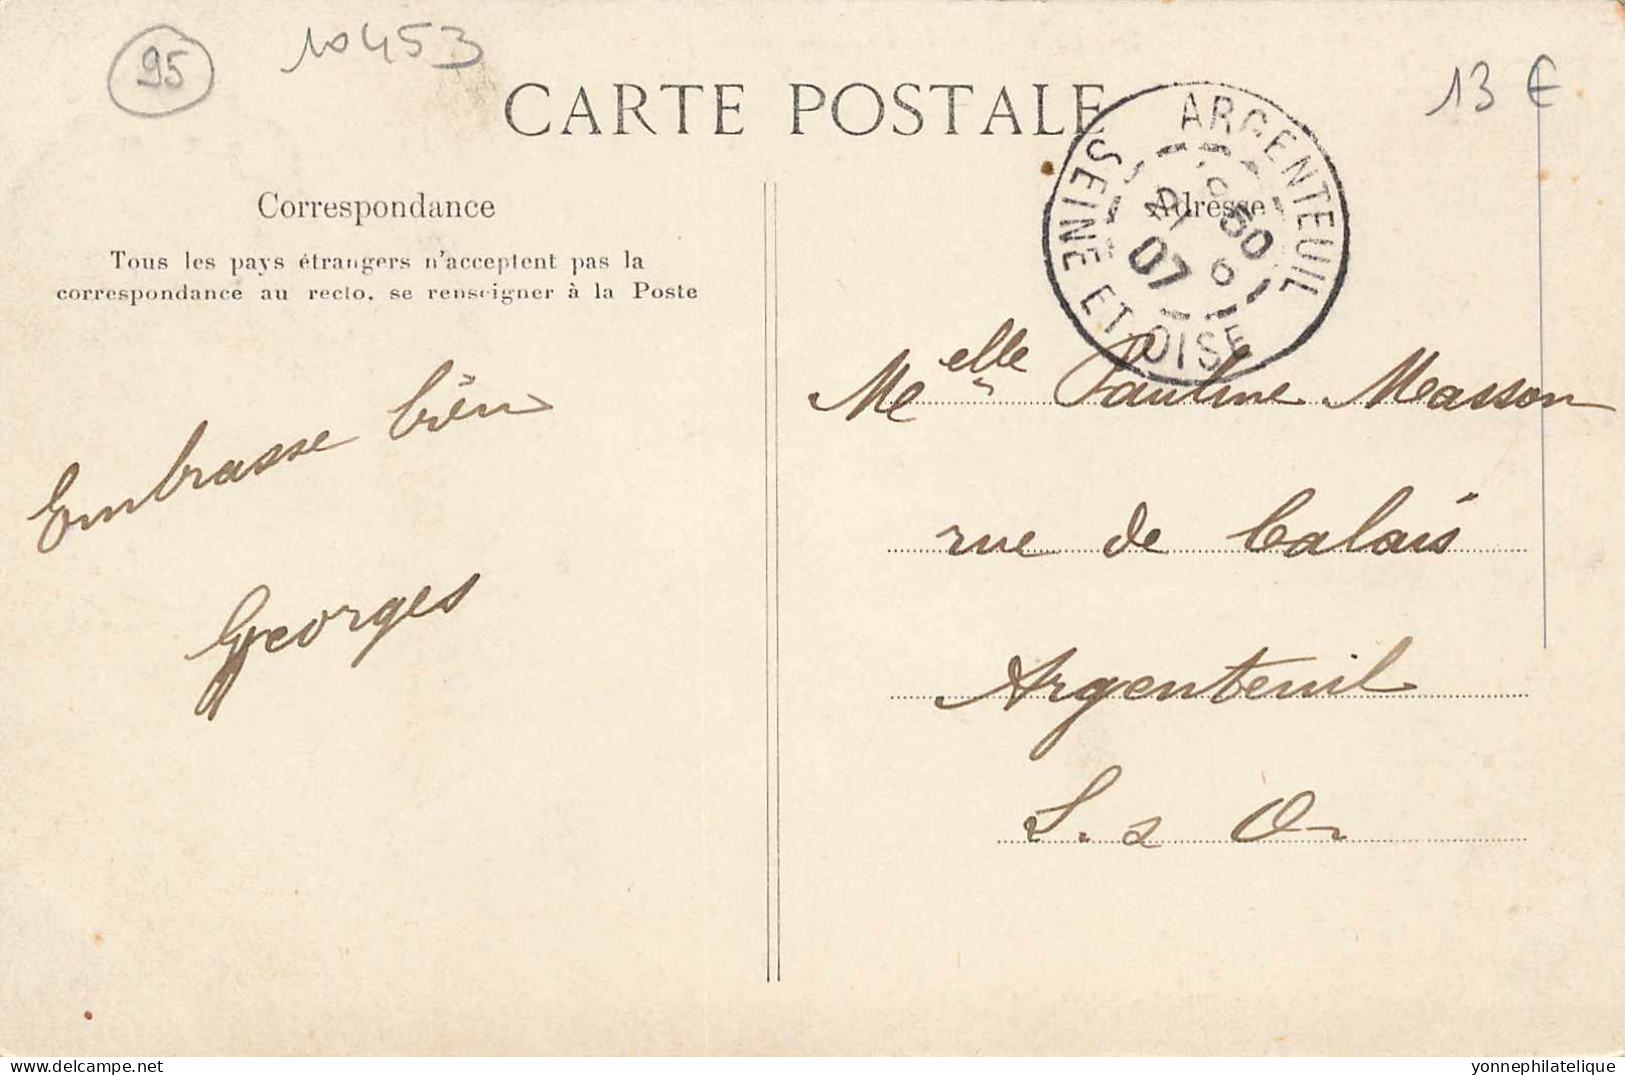 95
10453
13 €
CARTE POSTALE
ARGENTEUIL
SEINE ET OISE
21
6
07
Correspondance
Tous les pays étrangers n'acceptent pas la
correspondance au recto, se renseigner à la Poste
Adresse
Embrasse bien
Georges
Melle Pauline Masson
rue de Calais
Argenteuil
S. & O.
yonnephilatelique.com